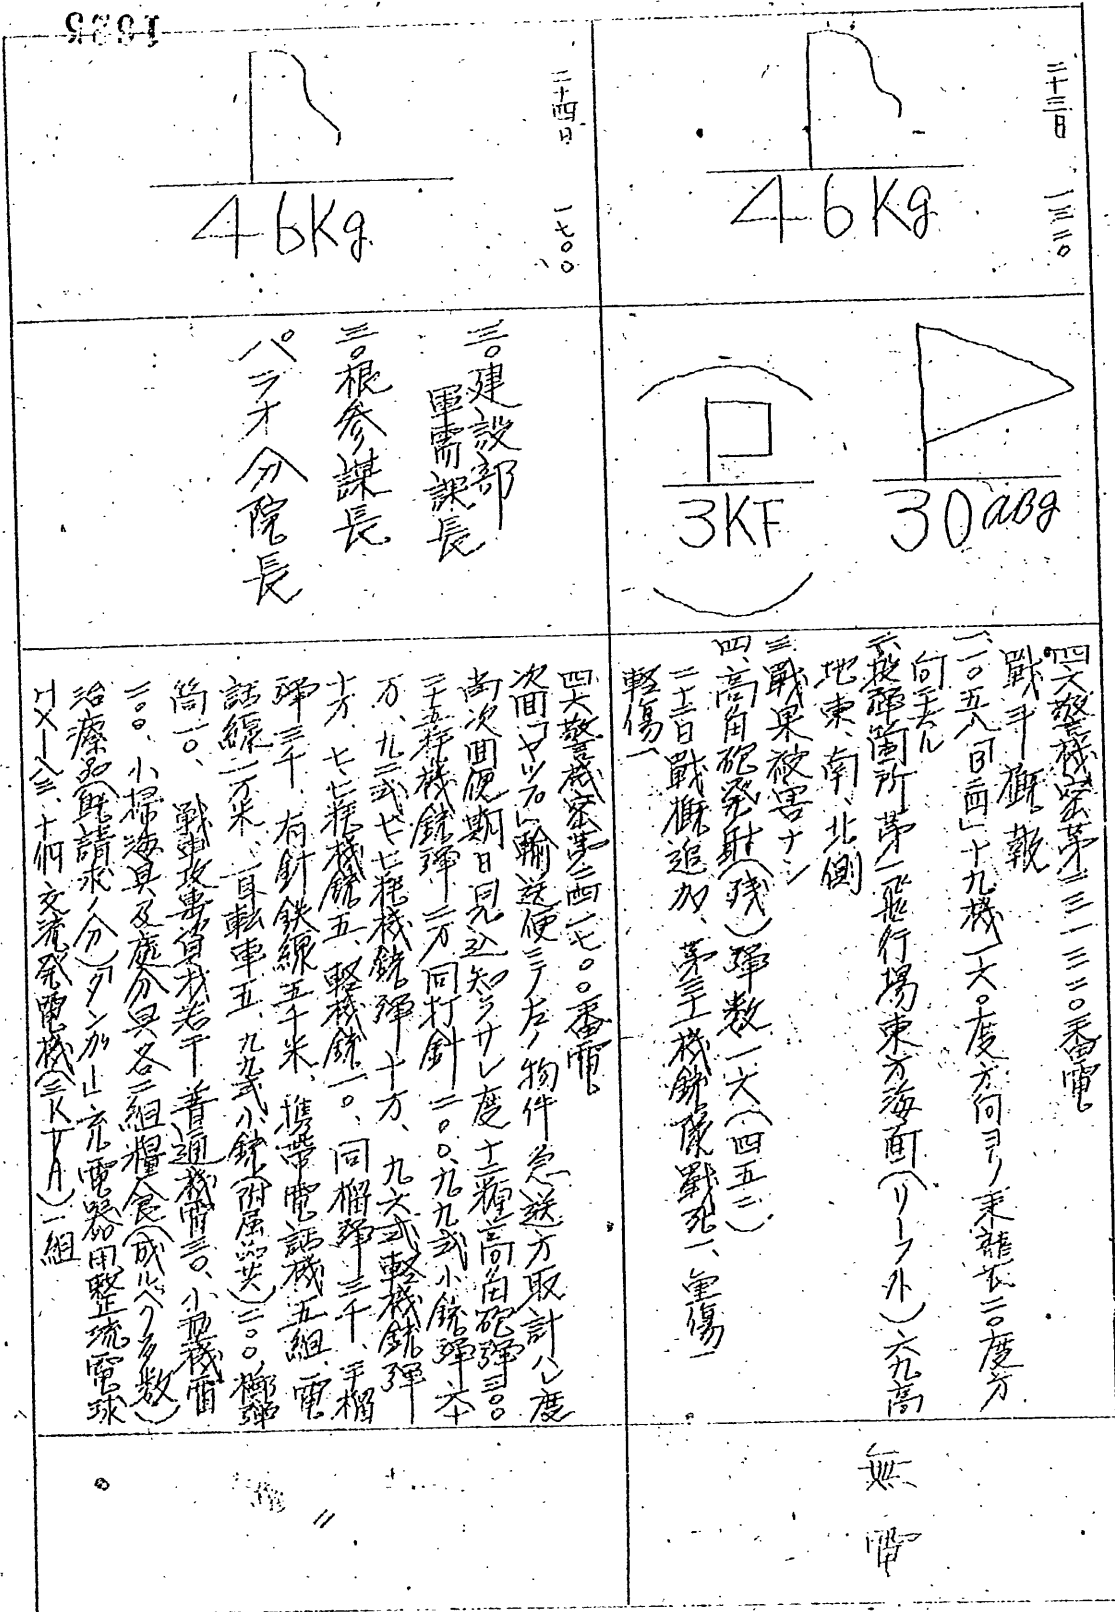 二十三日 一三二〇
46Kg
30aBg
3KF
四六警機密第二三一三二〇番電
戰斗概報
一、一〇五八「B二四」十九機一六〇度方向ヨリ来襲、二〇度方
向ニ去ル
二、投弾箇所 第一飛行場東方海面(リーフ外)六九高
地東、南、北側
三、戰果被害ナシ
四、高角砲発射(残)弾数一六(四五二)
二十二日戰概追加、第三十一機銃隊戰死一、重傷一
軽傷一
無電
二十四日 一七〇〇
46Kg
三〇建設部
軍需課長
三〇根参謀長
パラオ分院長
四六警機密第二四一七〇〇番電
次回「ヤップ」輸送便ニテ左ノ物件急送方取計ハレ度
尚次回便期日見込知ラサレ度十二糎高角砲弾三〇〇
二十五粍機銃弾二万同打針二〇〇、九九式小銃弾六十
万、九二式七、七粍機銃弾十万、九六式軽機銃弾
十万、七、七粍機銃五、軽機銃一〇、同榴弾三千、手榴
弾三千、有針鉄線五千米、携帯電話機五組、電
話線二万米、自転車五、九九式小銃(附属品共)二〇〇、擲弾
筒一〇、戰車攻撃資材若干普通機雷三〇、小型機雷
二〇〇、小掃海具及處分具各二組糧食(成ルベク多数)
治療品(既請求ノ分)タンガー充電器用整流電球
〃